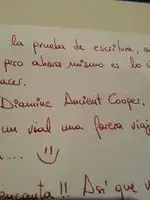 la prueba de escritura, a
pero ahora mismo es lo ú
acer.
Diamine Ancient Cooper.
un vial una parera viaj
... :)
encanta!! Así que v